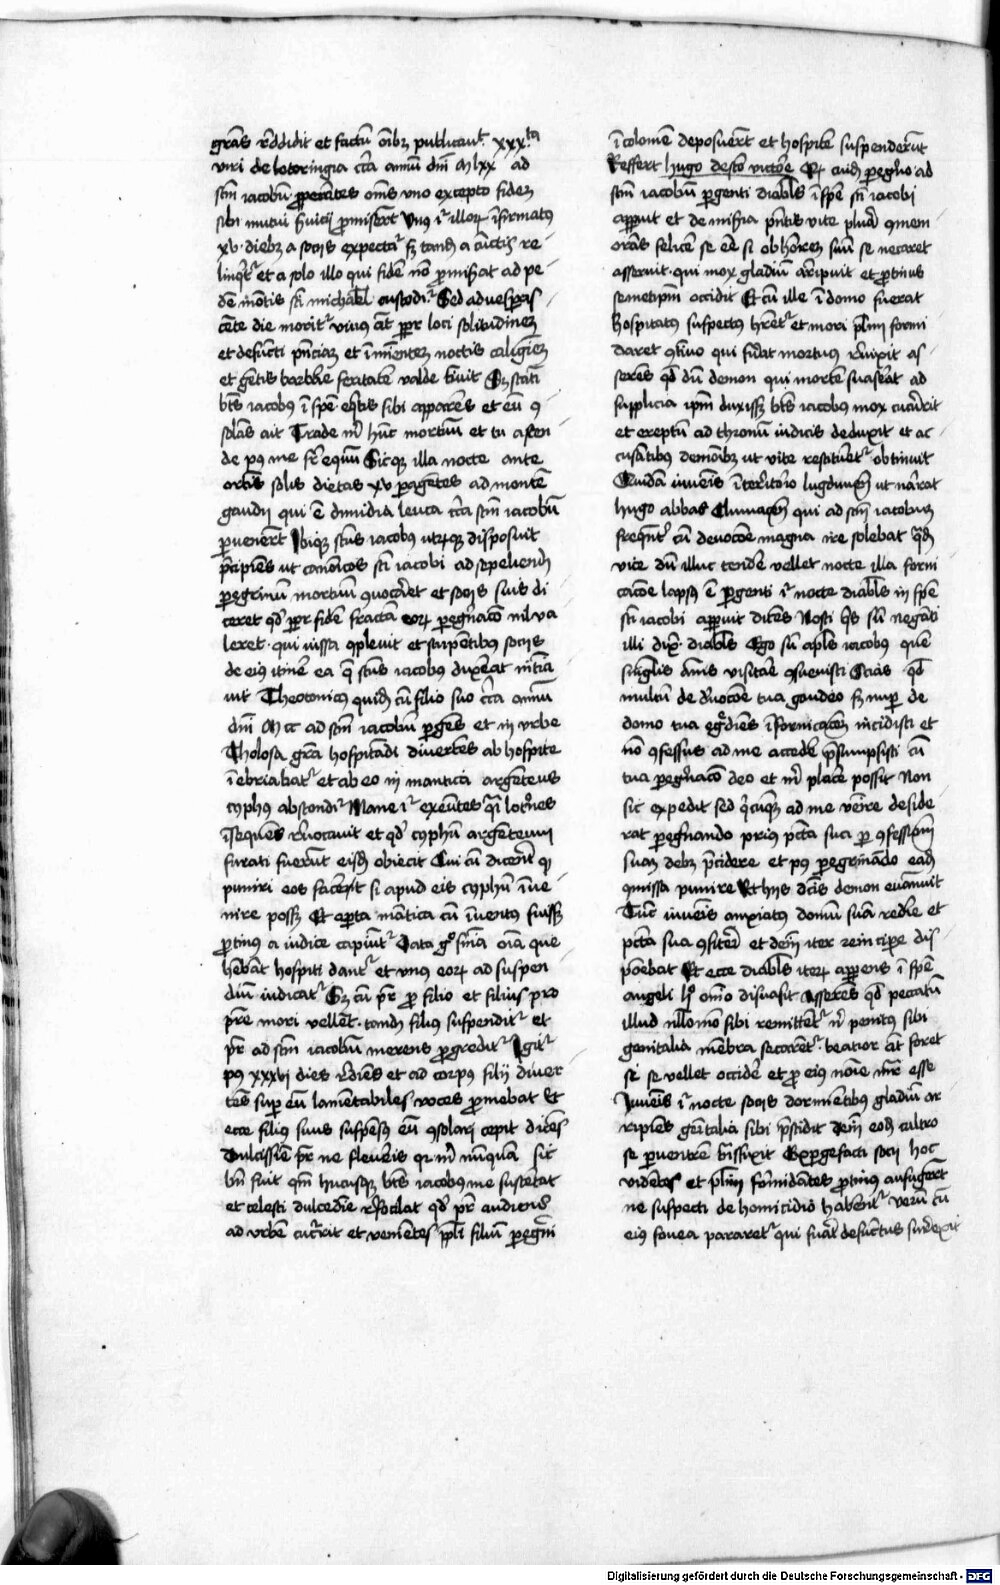 gr̃as rẽddidit et factũ oĩbꝫ publicaut᷑ xxx.ta
viri de lotoringia cc̃a annũ dñi M lxx ad
sc̃m iacobũ ꝓperãtes om̃s vno excepto fidem
sibi mutui ẜuitij ꝓmiserũt Vnꝰ iᷓ illoꝝ ĩfirmatꝰ
xv diebꝫ a socijs expectaᷓ sꝫ tandẽ a cũctis re
linqtᷓ et a solo illo qui fidẽ nõ ꝓmiserat ad pe
dẽ mõtis sc̃i michael custodiᷓ Sed aduesꝑas
cẽte die moritᷓ viuꝰ aũt ꝓpter loci solitudinem
et defũcti pñciam et ĩminentẽ noctis caliginẽ
et gẽtis barbarie feritatẽ valde timuit Sꝫ statĩ
bt̃s iacobꝰ ĩ spẽ eq̃tis sibi apparẽs et eũ ꝯ
solãs ait Trade m̃ hũc mortuũ et tu ascen
de pꝰ me sr̃ equũ Sicqꝫ illa nocte ante
ortũ solis dietas xv ꝑagẽtes ad montẽ
gaudij qui ẽ dimidia leuca cc̃a sc̃m iacobũ
ꝑuenerũt Ibiqꝫ sc̃us iacobꝰ utrũqꝫ disposuit
p̃cipiẽs ut canõicos sc̃i iacobi ad sepeliendũ
ꝑegrinũ mortuũ ꝯuocaret et socijs suis di
ceret qd̃ ꝓpter fidẽ fractã eoꝝ ꝑegr̃nacõ nil va
leret qui iussa ꝯpleuit et stupentibꝰ socijs
de eiꝰ itinẽ ea q̃ sc̃us iacobus dixerat narra
uit Theotonicꝰ quidã cũ filio suo cc̃a annũ
dñi M cc ad sc̃m iacobũ ꝑgẽs et in vrbe
Tholosa gr̃a hospitãdi diuertẽs ab hospite
ĩebriabatᷓ et ab eo in mantica argẽteus
cyphus abscondiᷓ Mane iᷓ exeũtes q̃i latr̃nes
ĩsequẽs reuocauit et qd̃ cyphũ argẽteum
furati fuerũt eisdẽ obiecit Cui cũ dicerẽt qꝫ
puniri eos faceret si apud eis cyphũ ĩue
nire posset Et aꝑta mãtica cũ ĩuentus fuisset
ꝓtinus a iudice capiũtᷓ Lata g̃ sñia oĩa que
hebãt hospiti dantᷓ et vnꝰ eoꝝ ad suspen
diũ iudicatᷓ Sꝫ cũ pr̃ ꝓ filio et filius pro
pr̃e mori vellet tandẽ filiꝰ suspenditᷓ et
pr̃ ad sc̃m iacobũ merens ꝓgreditᷓ Igitᷓ
pꝰ xxxvj dies rediẽs et ad corpꝰ filij diuer
tẽs suꝑ eũ lamẽtabiles voces ꝓmebat Et
ecce filiꝰ suus suspẽsꝰ eũ ꝯsolari cepit dicẽs
Dulcissĩe pr̃ ne fleueris qr m̃ nũquã sic
bñ fuit qm̃ hucusqꝫ bt̃s iacobꝰ me sustẽtat
et celesti dulcedĩe refocilat qd̃ pr̃ audiens
ad vrbẽ cucurrit et veniẽtes pp̃li filiũ ꝑegrini
ĩcolomẽ deposuerũt et hospitẽ suspenderũt
Reffert hugo de sc̃o victore Qꝫ cuidã ꝑegrino ad
sc̃m iacobũ ꝑgenti diabl̃s ĩ spẽ sc̃i iacobi
apparuit et de miẜia pñtis vite plura ꝯmem
orãs felicẽ se eẽ si ob honorẽ suũ se necaret
asseruit qui mox gladiũ arripuit et ꝓtinus
semetip̃m occidit Et cũ ille ĩ domo fuerat
hospitatꝰ suspectus hr̃etᷓ et mori plim̃ formi
daret q̃tiuo qui fuẽat mortuꝰ reuixit as
serẽs qd̃ dũ demon qui mortẽ suaserat ad
supplicia ip̃m duxisset bt̃s iacobus mox cucurrit
et ereptũ ad thronũ iudicis deduxit et ac
cusãtibus demõibꝫ ut vite restitueretᷓ obtinuit
Quidã iuuenis ĩ territorio lugdunen̄ ut narrat
hugo abbas Cluniacen̄ qui ad sc̃m iacobum
frequẽter cũ deuocõe magna ire solebat Quadã
vice dũ illuc tendere vellet nocte illa forni
cacõe lapsus ẽ ꝑgenti iᷓ nocte diabl̃s in spẽ
sc̃i iacobi apparuit dicẽs Nosti q̃s sũ neganti
illi dix̃ diabl̃s Ego sũ apl̃s iacobus quẽ
singlis ãnis visitare ꝯsueuisti Scias qd̃
multũ de deuocõe tua gaudeo sꝫ nuꝑ de
domo tua egrediẽs ĩ fornicacõem incidisti et
nõ ꝯfessus ad me accedere p̃sumpsisti cũ
tua ꝑegrinacõ deo et m̃ placere possit Non
sic expedit sed q̃cunqꝫ ad me venire deside
rat ꝑegrinando prius pc̃ta sua ꝑ ꝯfessionem
suam debꝫ p̃cidere et pꝰ ꝑegrinãdo eadẽ
ꝯmissa punire Et hijs dc̃is demon euanuit
Tũc iuuenis anxiatus domũ suã redire et
pc̃ta sua ꝯfiteri et demũ iter reincipere dis
ponebat Et ecce diabl̃s iterũ apparens ĩ spẽ
angeli h̃ om̃o disuasit asserẽs qd̃ peccatũ
illud nullomõ sibi remittetᷓ ni penitꝰ sibi
genitalia mẽbra secaretᷓ beatior aũt foret
si se vellet occidere et ꝓ eiꝰ noĩe mr̃ esse
Iuuenis iᷓ nocte socijs dormiẽtibꝰ gladiũ ar
ripiẽs genitalia sibi p̃scidit demũ eodẽ cultro
se ꝑ ventrẽ transfixit Exꝑgefacti socij hoc
vidẽtes et plim̃ formidãtes ꝓtinus aufugerũt
ne suspecti de homicidio haberẽtᷓ verũ cũ
eiꝰ fouea pararetᷓ qui fuãt defũctus surrexit
Digitalisierung gefördert durch die Deutsche Forschungsgemeinschaft - DFG